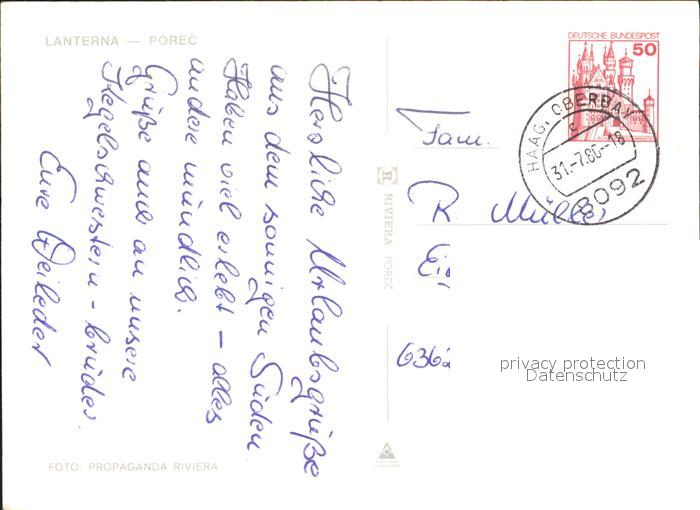 LANTERNA — POREČ
Herzliche Urlaubsgrüße
aus dem sonnigen Süden
Haben viel erlebt - alles
andere mündlich.
Grüße auch an unsere
Kegelschwestern - brüder.
Eure Weileder
FOTO: PROPAGANDA RIVIERA
RIVIERA POREČ
DEUTSCHE BUNDESPOST
50
HAAG, OBERBAY
c
31.-7.86-18
8092
Fam.
R. Müller
Ei
636
privacy protection
Datenschutz